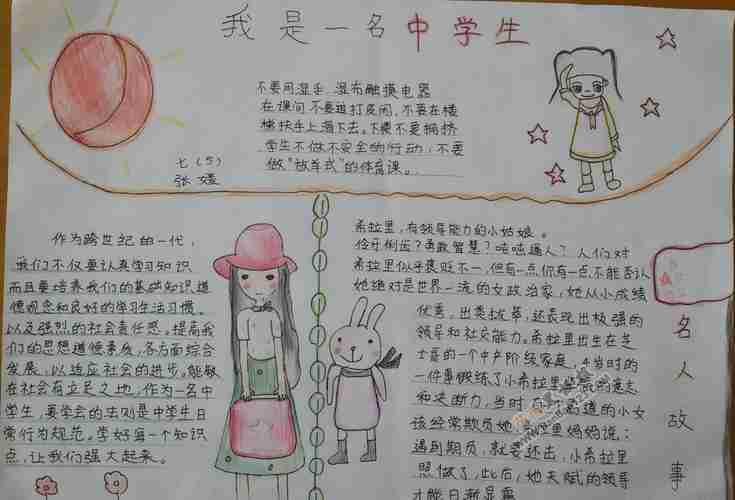 我是一名中学生
不要用湿手、湿布触摸电器
在课间不要追打疯闹,不要在楼
梯扶手上滑下去。下楼不要拥挤
学生不做不安全的行动,不要
做"放羊式"的体育课。
七(5)
张媛
作为跨世纪的一代,
我们不仅要认真学习知识
而且要培养我们的基础知识道
德观念和良好的学习生活习惯。
以及强烈的社会责任感,提高我
们的思想道德素质,各方面综合
发展,以适应社会的进步,能够
在社会有立足之地,作为一名中
学生,要学会的法则是中学生日
常行为规范。学好每一个知识
点,让我们强大起来。
希拉里,有领导能力的小姑娘。
伶牙俐齿?勇敢智慧?咄咄逼人?人们对
希拉里似乎褒贬不一,但有一点,你有一点,不能否认
她绝对是世界一流的女政治家,她从小成绩
优秀,出类拔萃,还表现出极强的
领导和社交能力。希拉里出生在芝
士哥的一个中产阶级家庭,4岁时的
一件事锻练了小希拉里坚毅的意志
和决断力,当时 道的小女
孩经常欺负她 里妈妈说:
遇到期负,就要还击,小希拉里
照做了,此后,她天赋的领导
才能日渐显露
名人故事